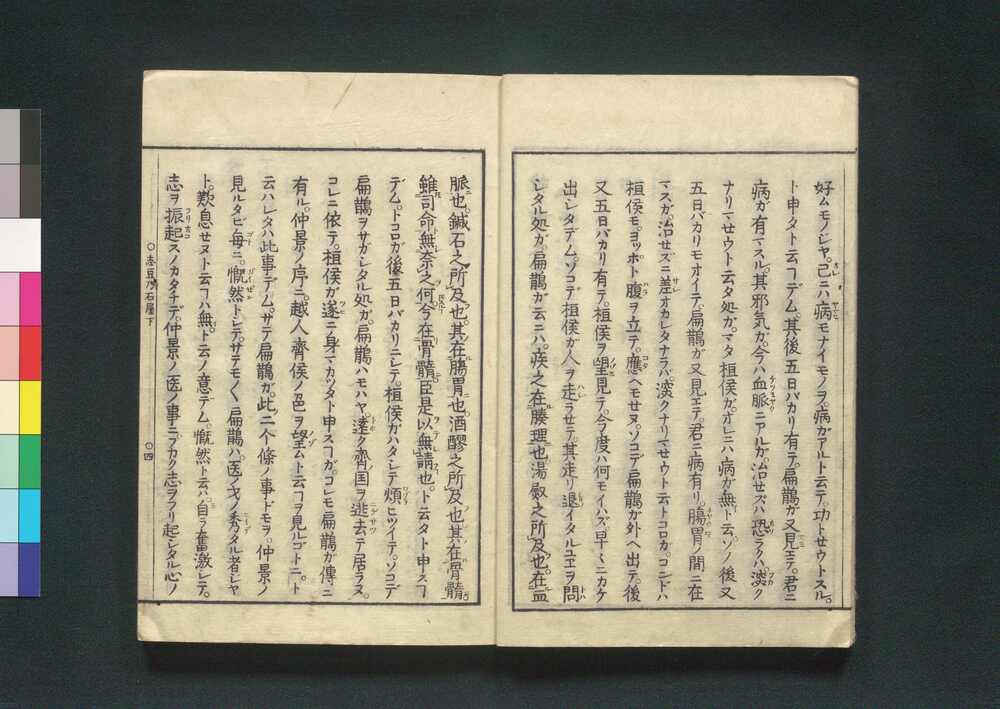 好ムモノシヤ。己ニハ病モナイモノヲ。病ガアルト云テ。功トセウトスル。
ト申タト云ヿデム。其後五日バカリ有テ。扁鵲ガ又見エテ。君ニ
病ガ有マスル。其邪気ガ。今ハ血脈ニアルガ。治セズハ恐ラクハ深ク
ナリマセウト云タ処ガ。マタ桓侯ガ。オレニハ病ガ無ト云。ソノ後又
五日バカリモオイテ。扁鵲ガ又見エテ。君ニ病有リ。腸胃ノ間ニ在
マスガ。治セズニ差オカレタナラバ。深クナリマセウト云トコロガ。コンドハ
桓侯モ。ヨツポト腹ヲ立テ。應ヘモセヌ。ソコデ扁鵲ガ外ヘ出テ。後
又五日バカリ有テ。桓侯ヲ望見テ。今度ハ何モイハズ。早々ニカケ
出シタデム。ソコデ桓侯ガ人ヲ走ラセテ。其走リ退イタルユエヲ問
シタル処ガ。扁鵲ガ云ニハ。疾之在腠理也。湯熨之所及也。在血
脈也。鍼石之所及也。其在腸胃也。酒醪之所及也。其在骨髓。
雖司命無奈之何。今在骨髓。臣是以無請也。ト云タト申スヿ
デム。トコロガ後五日バカリニシテ。桓侯ガハタシテ煩ヒツイテ。ソコデ
扁鵲ヲサガシタル処ガ。扁鵲ハモハヤ。遠ク齊国ヲ逃去テ居ラヌ。
コレニ依テ。桓侯ガ遂ニ身マカツタト申スヿガ。コレモ扁鵲ガ傳ニ
有ル。仲景ノ序ニ。越人齊侯ノ色ヲ望ムト云ヿヲ見ルゴトニ。ト
云ハレタハ此事デム。サテ扁鵲ガ。此二个條ノ事ドモヲ。仲景ノ
見ルタビ毎ニ。慨然トシテ。サテモノく扁鵲ハ。医ノ才ノ秀タル者シヤ
ト。歎息セヌト云ヿハ無。ト云ノ意デム。慨然ト云ハ。自ラ奮激シテ。
志ヲ振起スノカタチデ。仲景ノ医ノ事ニ。フカク志ヲフリ起シタル心ノ
〇志豆乃石屋下
〇四